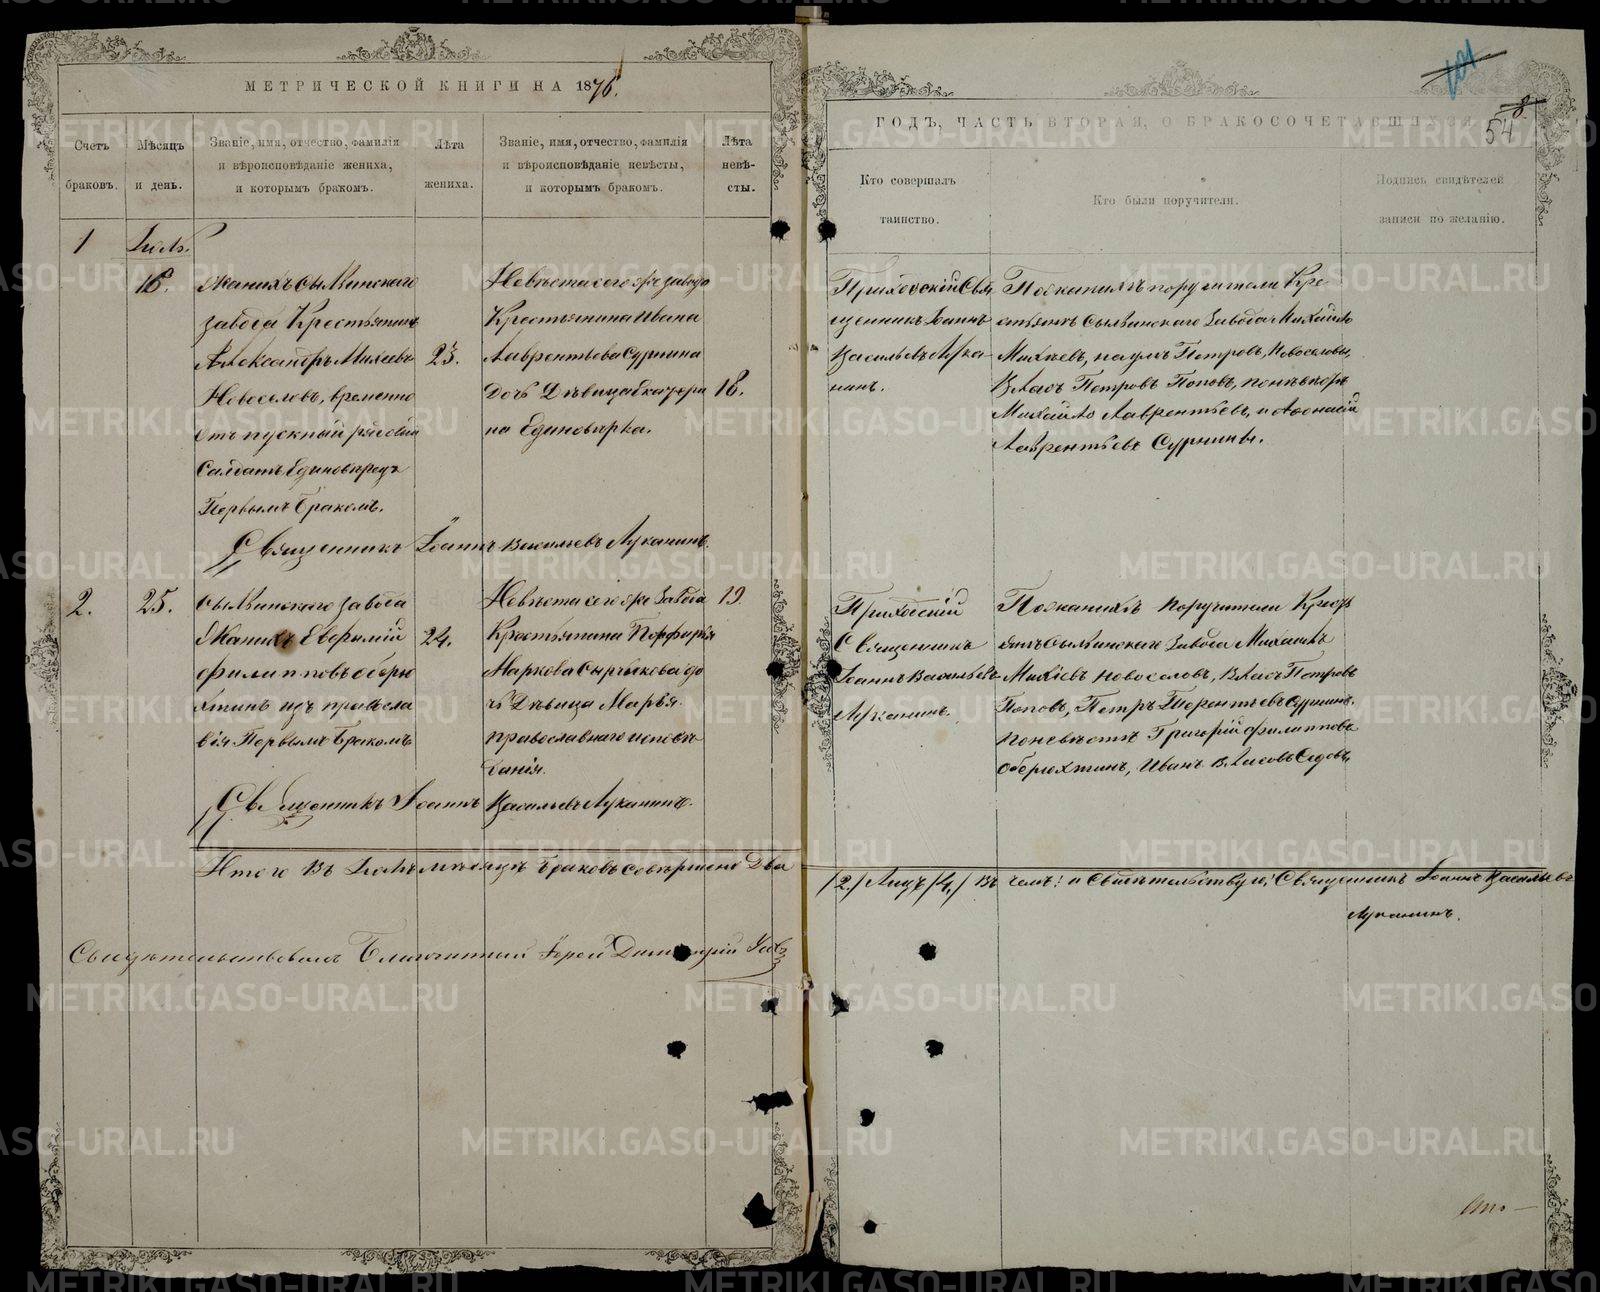 МЕТРИЧЕСКОЙ КНИГИ НА 1876.
Счетъ
браковъ.
Мѣсяцъ
и день.
Званіе, имя, отчество, фамилія
и вѣроисповѣданіе жениха,
и которымъ бракомъ.
Лѣта
жениха.
Званіе, имя, отчество, фамилія
и вѣроисповѣданіе невѣсты,
и которымъ бракомъ.
Лѣта
невѣ-
сты.
1
Іюль.
16.
Женихъ Сылвинскаго
завода Крестьянинъ
Александръ Михеевъ
Новоселовъ, временно
отпускный рядовый
Солдатъ Единоверецъ
Первымъ Бракомъ.
23.
Невѣста сего же завода
Крестьянина Ивана
Лаврентьева Сурнина
Дочь Дѣвица Екатери
на Единовѣрка.
18.
Священникъ Іоаннъ Васильевъ Луканинъ.
2.
25.
Сылвинскаго завода
Женихъ Евфимій
Филипповъ Обрю
хтинъ изъ правосла
вія Первымъ Бракомъ
24.
Невѣста сего же Завода
Крестьянина Порфирія
Маркова Сыр до
чь Дѣвица Марья
православнаго исповѣ
данія.
19.
Священникъ Іоаннъ Васильевъ Луканинъ.
Итого въ Іюлѣ мѣсяцѣ браковъ совершено Два
Свидѣтельствовалъ Благочинный Іерей Димитрій
101
8.
54
ГОДЪ, ЧАСТЬ ВТОРАЯ, О БРАКОСОЧЕТАВШИХСЯ
Кто совершалъ
таинство.
Кто были поручители.
Подпись свидѣтелей
записи по желанію.
Приходскій Свя
щенникъ Іоаннъ
Васильевъ Лука
нинъ.
По женихѣ поручители Кре-
стьянъ Сылвинскаго Завода Михайло
Михѣевъ, Наумъ Петровъ, Новоселовы,
Власъ Петровъ Поповъ, по невѣстѣ
Михайло Лаврентьевъ, и Афонасій
Лаврентьевъ Сурнины.
Приходскій
Священникъ
Іоаннъ Васильевъ
Луканинъ.
По женихѣ Поручители Кресть
янъ Сылвинскаго Завода Михаилъ
Михѣевъ Новоселовъ, Власъ Петровъ
Поповъ, Петръ Терентьевъ Сурнинъ.
По невѣстѣ Григорій Филипповъ
Оберюхтинъ, Иванъ Власовъ Седовъ,
/2./ Лицъ /4./ Въ чемъ: и Свидѣтельствую: Священникъ Іоаннъ Васильевъ
Луканинъ.
METRIKI.GASO-URAL.RU